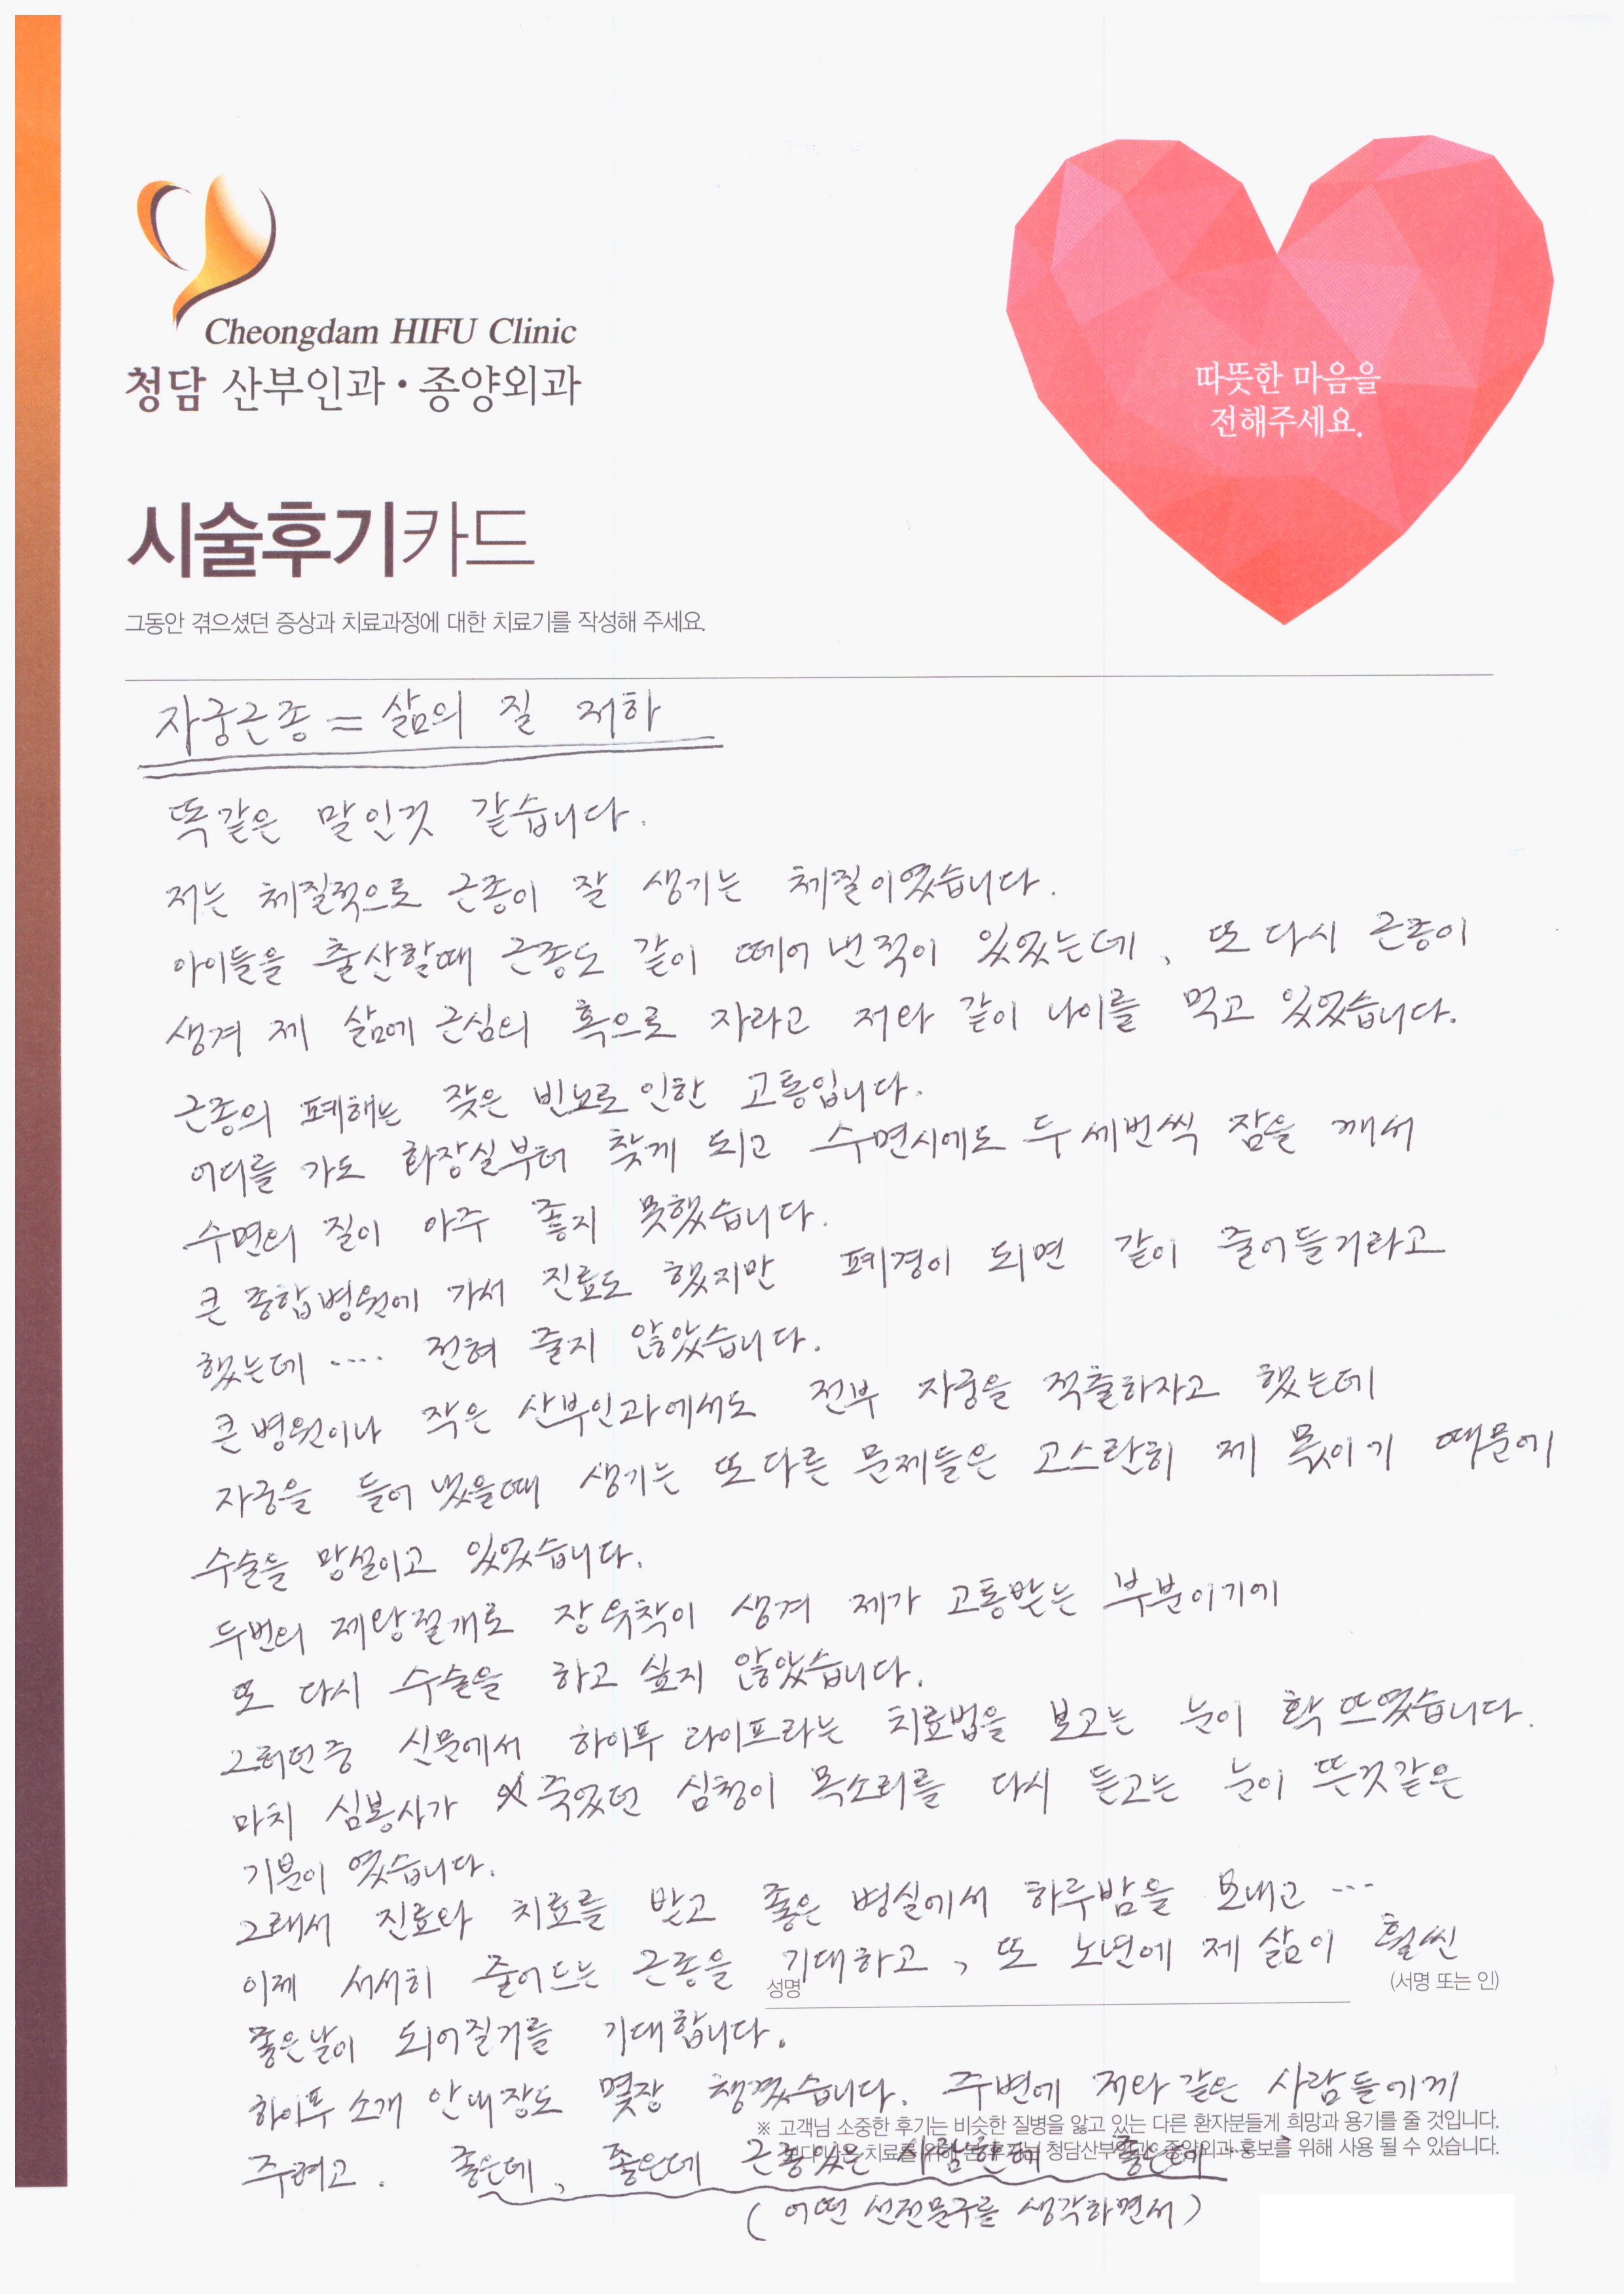 Cheongdam HIFU Clinic
청담 산부인과•종양외과
따뜻한 마음을
전해주세요.
시술후기카드
그동안 겪으셨던 증상과 치료과정에 대한 치료기를 작성해 주세요.
자궁근종 = 삶의 질 저하
똑같은 말인것 같습니다.
저는 체질적으로 근종이 잘 생기는 체질이였습니다.
아이들을 출산할때 근종도 같이 떼어 낸적이 있었는데, 또 다시 근종이
생겨 제 삶에 근심의 혹으로 자라고 저와 같이 나이를 먹고 있었습니다.
근종의 폐해는 잦은 빈뇨로 인한 고통입니다.
어디를 가도 화장실부터 찾게 되고 수면시에도 두세번씩 잠을 깨서
수면의 질이 아주 좋지 못했습니다.
큰 종합병원에 가서 진료도 했지만 폐경이 되면 같이 줄어들거라고
했는데 .... 전혀 줄지 않았습니다.
큰 병원이나 작은 산부인과에서도 전부 자궁을 적출하자고 했는데
자궁을 들어 냈을때 생기는 또다른 문제들은 고스란히 제 몫이기 때문에
수술을 망설이고 있었습니다.
두번의 제왕절개로 장유착이 생겨 제가 고통받는 부분이기에
또 다시 수술을 하고 싶지 않았습니다.
그러던중 신문에서 하이푸 라이프라는 치료법을 보고는 눈이 확 뜨였습니다.
마치 심봉사가 죽었던 심청이 목소리를 다시 듣고는 눈이 뜬것같은
기분이 였습니다.
그래서 진료와 치료를 받고 좋은 병실에서 하루밤을 보내고 ...
이제 서서히 줄어드는 근종을 기대하고, 또 노년에 제 삶이 훨씬
성명 (서명 또는 인)
좋은날이 되어질거를 기대합니다.
하이푸 소개 안내장도 몇장 챙겼습니다. 주변에 저와 같은 사람들에게
※ 고객님 소중한 후기는 비슷한 질병을 앓고 있는 다른 환자분들게 희망과 용기를 줄 것입니다.
치료를 위해 청담산부인과 종양외과 홍보를 위해 사용 될 수 있습니다.
주려고. 좋은데, 좋은데 근종있은 사람한테 좋은데
(어떤 선전문구를 생각하면서)